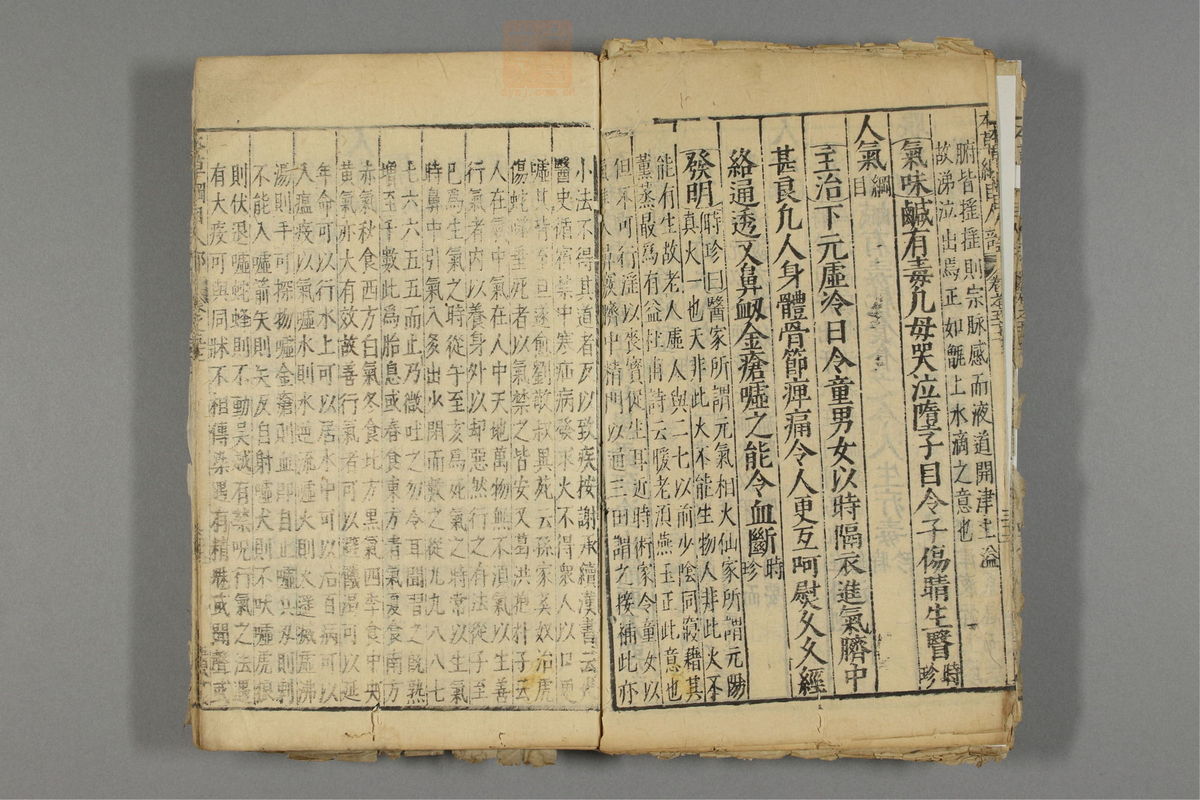 腑皆搖搖則宗脉感而液道開津上溢
故涕泣出焉正如甑上水滴之意也
氣味鹹有毒凡母哭泣墮子目令子傷睛生瞖時珍
人氣綱目
主治下元虛冷日令童男女以時隔衣進氣臍中
甚良凡人身體骨節痺痛令人更互呵熨久久經
絡通透又鼻衂金瘡噓之能令血斷時珍
發明時珍曰醫家所謂元氣相火仙家所謂元陽
真火一也天非此火不能生物人非此火不
能有生故老人虛人與二七以前少陰同寢藉其
薰蒸最爲有益杜甫詩云暖老須燕玉正此意也
但不可行淫以喪寶促生耳近時術家令童女以
氣進入鼻竅臍中精門以通三田謂之接補此亦
小法不得其道者反以致疾按謝承續漢書云
醫史循宿禁中寒疝病發求火不得衆人以口更
噓其背至旦遂愈劉敬叔異苑云孫家奚奴治虎
傷蛇噬垂死者以氣禁之皆安又葛洪抱朴子云
人在氣中氣在人中天地萬物無不須氣以生善
行氣者内以養身外以却惡然行之有法從子至
巳爲生氣之時從午至亥爲死氣之時常以生氣
時鼻中引氣入多出少閉而數之從九九八八七
七六六五五而止乃微吐之勿令耳聞習之旣熟
增至千數此爲胎息或春食東方青氣夏食南方
赤氣秋食西方白氣冬食北方黑氣四季食中央
黄氣亦大有效故善行氣者可以避饑渴可以延
年命可以行水上可以居水中可以治百病可以
入瘟疫以氣噓水則水逆流噓火則火遙滅噓沸
湯則手可探物噓金瘡則血即自止噓兵刃則刺
不能入噓箭矢則矢反自射噓犬則不吠噓虎狼
則伏退噓蛇蜂則不動吳越有禁呪行氣之法遇
有大疫可與同牀不相傳染遇有精魅或聞聲或